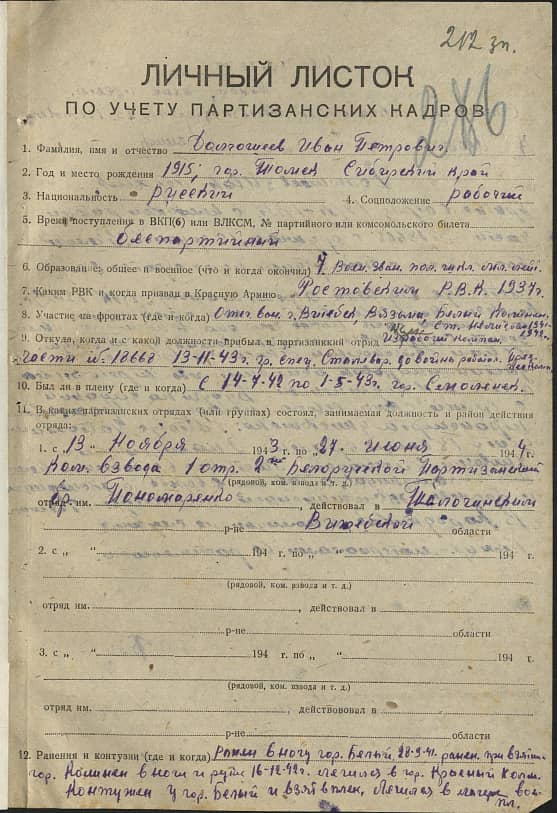 212 зп.
286
ЛИЧНЫЙ ЛИСТОК
ПО УЧЕТУ ПАРТИЗАНСКИХ КАДРОВ
1. Фамилия, имя и отчество Иван Петрович
2. Год и место рождения 1915, гор. Томск Сибирский край
3. Национальность русский 4. Соцположение рабочий
5. Время поступления в ВКП(б) или ВЛКСМ, № партийного или комсомольского билета
беспартийный
6. Образование: общее и военное (что и когда окончил) 7
7. Каким РВК и когда призван в Красную Армию Ростовским Р.В.К. 1937г.
8. Участие на фронтах (где и когда) Витебск, Вязьма, Белый
9. Откуда, когда и с какой должности прибыл в партизанский отряд
части № 13-11-43г. гр. спец. до войны
10. Был ли в плену (где и когда) С 14-7-42 по 1-5-43г. гор. Смоленск.
11. В каких партизанских отрядах (или группах) состоял, занимаемая должность и район действия
отряда:
1. с „13 " Ноября 1943 г. по „27 " июня 1944 г.
Ком. взвода 1 отр. 2ой Белорусской Партизанской
(рядовой, ком. взвода и т. д.)
бр. отряд им. Пономаренко, действовал в Толочинском
р-не Витебской области
2. с „ " 194 г. по „ " 194 г.
(рядовой, ком. взвода и т. д.)
отряд им. , действовал в
р-не области
3. с „ " 194 г. по „ " 194 г.
(рядовой, ком. взвода и т. д.)
отряд им. , действовал в
р-не области
12. Ранения и контузии (где и когда) Ранен в ногу гор. Белый, 28-9-41. ранен при взятии
гор. Калинин в ноги и руки 16-12-42г. Лечился в гор. Красный Холм.
Контужен у гор. Белый и взят в плен, Лечился в лагере воен-
пл.